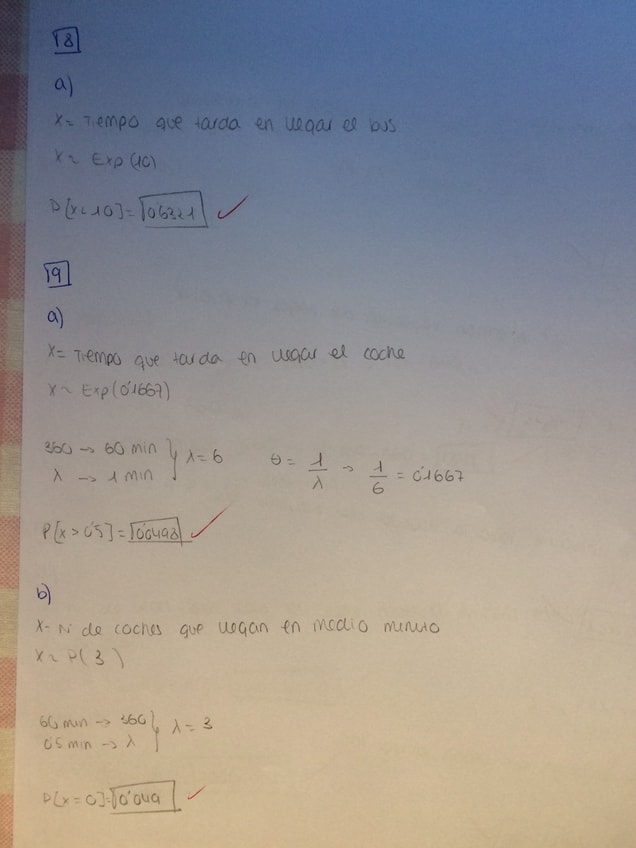 18
a)
X = Tiempo que tarda en llegar el bus
X ~ Exp(10)
P[X<10] = 0'6321 ✓
19
a)
X = Tiempo que tarda en llegar el coche
X ~ Exp(0'1667)
360 → 60 min } λ = 6 θ = 1/λ → 1/6 = 0'1667
λ → 1 min
P[X > 0'5] = 0'0498 ✓
b)
X = Nº de coches que llegan en medio minuto
X ~ P(3)
60 min → 360 } λ = 3
0'5 min → λ
P[X = 0] = 0'049 ✓